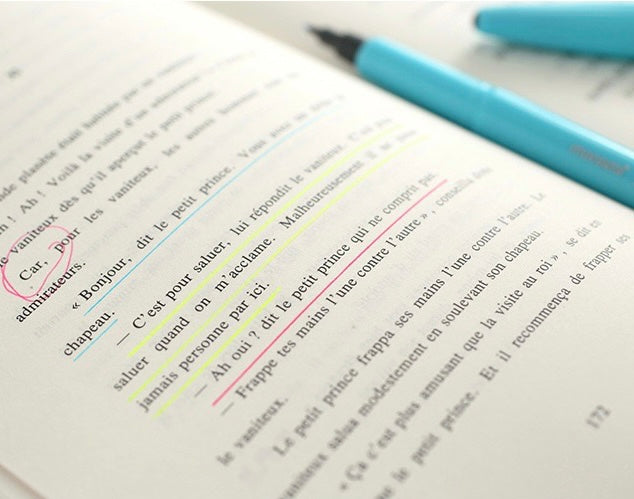 planète était habitée par un
Ah ! Ah ! Voilà la visite d'un
le vaniteux dès qu'il aperçut le petit prince.
Car, pour les vaniteux, les autres hommes
admirateurs.
« Bonjour, dit le petit prince. Vous avez un
chapeau.
— C'est pour saluer, lui répondit le vaniteux. C'est
saluer quand on m'acclame. Malheureusement il ne
jamais personne par ici.
— Ah oui ? dit le petit prince qui ne comprit pas.
— Frappe tes mains l'une contre l'autre », conseilla
le vaniteux.
Le petit prince frappa ses mains l'une contre l'autre. Le
vaniteux salua modestement en soulevant son chapeau.
« Ça c'est plus amusant que la visite au roi », se dit en
le petit prince. Et il recommença de frapper ses
172